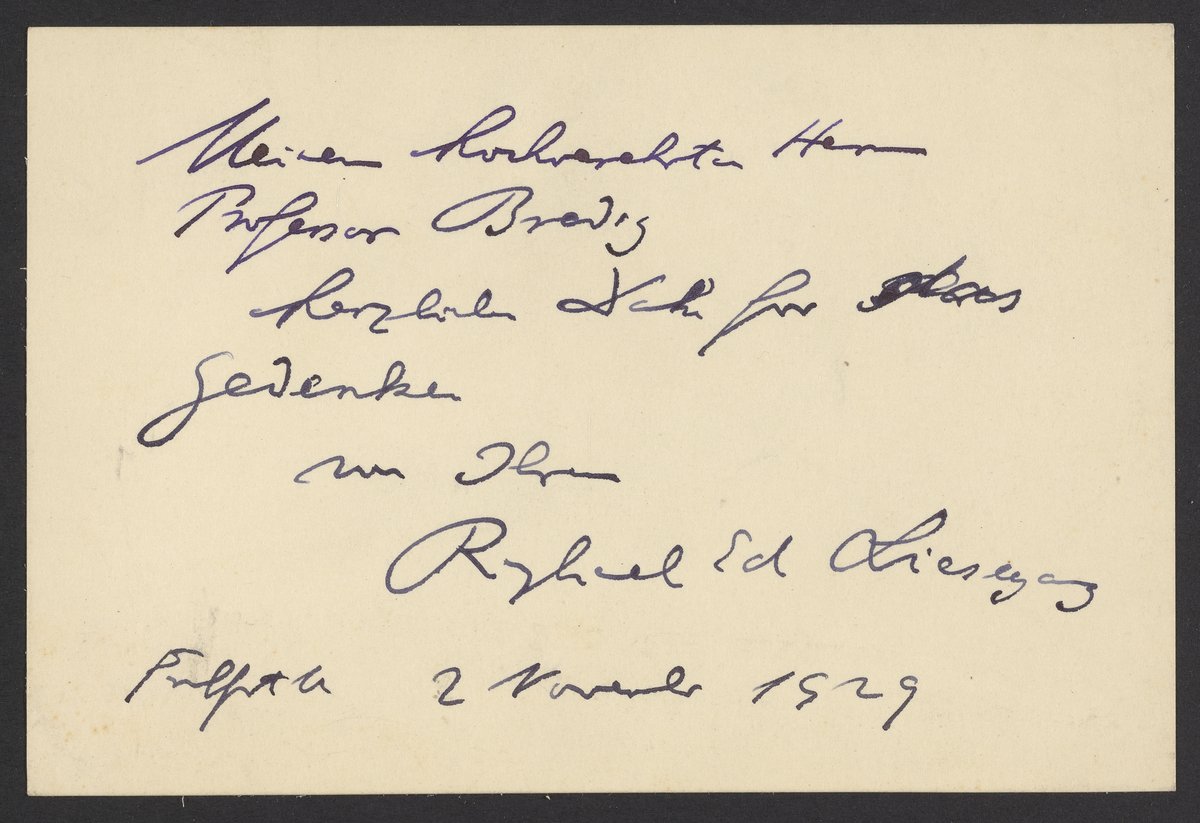 Meinem hochverehrten Herrn
Professor Bredig
herzlichen Dank für
Gedenken
von Ihrem
Raphael Ed Liesegang
2 November 1929